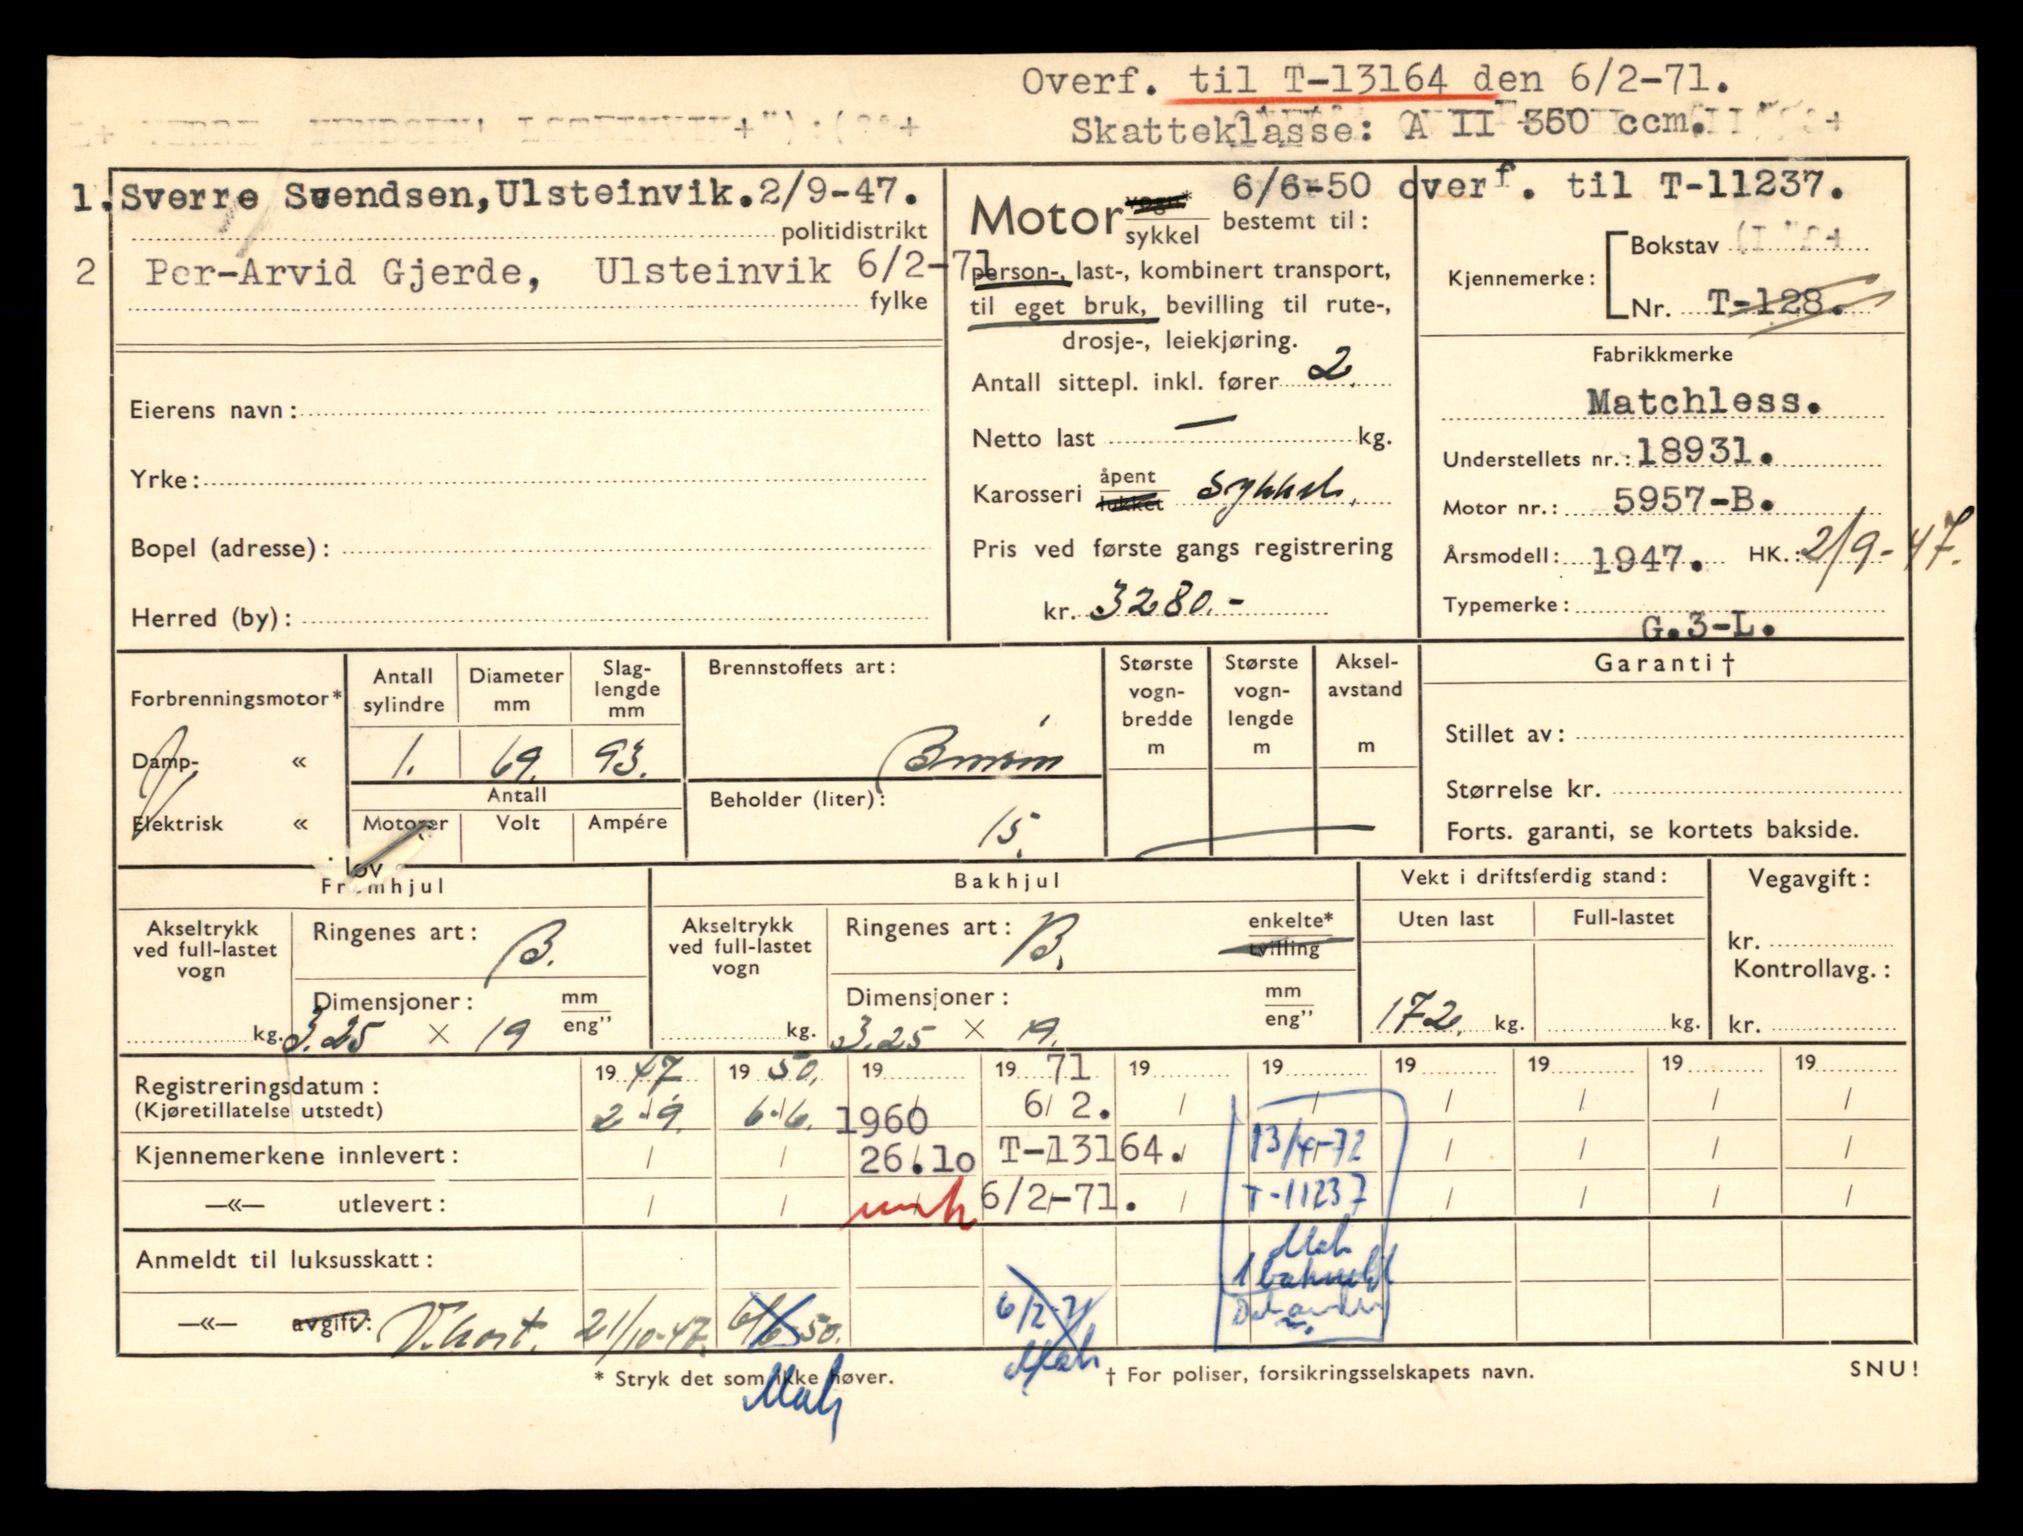 Overf. til T-13164 den 6/2-71.
Skatteklasse: A II 350 ccm.
1. Sverre Svendsen, Ulsteinvik. 2/9-47.
politidistrikt
2 Per-Arvid Gjerde, Ulsteinvik 6/2-71
fylke
Eierens navn:
Yrke:
Bopel (adresse):
Herred (by):
6/6-50 overf. til T-11237.
Motor vogn* sykkel bestemt til:
person-, last-, kombinert transport,
til eget bruk, bevilling til rute-,
drosje-, leiekjøring.
Antall sittepl. inkl. fører 2.
Netto last — kg.
Karosseri åpent lukket sykkel.
Pris ved første gangs registrering
kr. 3280.-
Kjennemerke: Bokstav
Nr. T-128.
Fabrikkmerke
Matchless.
Understellets nr.: 18931.
Motor nr.: 5957-B.
Årsmodell: 1947. HK.: 2/9-47.
Typemerke:
G.3-L.
Forbrenningsmotor*
Damp- «
Elektrisk «
Antall sylindre
Diameter mm
Slag-lengde mm
1. 69. 93.
Antall
Motorer Volt Ampére
Brennstoffets art:
Bensin
Beholder (liter):
15.
Største vogn-bredde m
Største vogn-lengde m
Aksel-avstand m
Garanti †
Stillet av:
Størrelse kr.
Forts. garanti, se kortets bakside.
Framhjul
Akseltrykk ved full-lastet vogn
kg.
Ringenes art: B.
Dimensjoner: mm eng”
3.25 × 19
Bakhjul
Akseltrykk ved full-lastet vogn
kg.
Ringenes art: B. enkelte* tvilling
Dimensjoner: mm eng”
3.25 × 19.
Vekt i driftsferdig stand:
Uten last Full-lastet
172. kg. kg.
Vegavgift:
kr.
Kontrollavg.:
kr.
19 47 19 50. 19 19 71 19 19 19 19 19 19
Registreringsdatum:
(Kjøretillatelse utstedt)
2/9. 6/6. 1960 6/2.
Kjennemerkene innlevert:
26.10 T-13164. 13/4-72
—«— utlevert:
6/2-71. T-11237
Anmeldt til luksusskatt:
—«— avgift: V.kort. 21/10-47. 6/6-50. 6/2-71
* Stryk det som ikke høver.
† For poliser, forsikringsselskapets navn.
SNU!